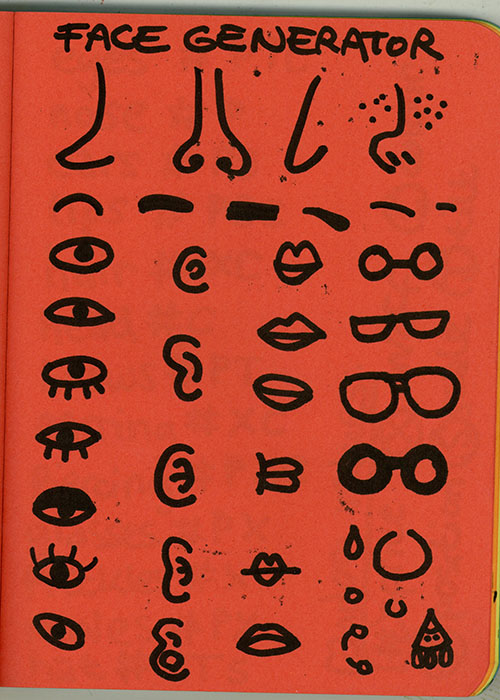 FACE GENERATOR